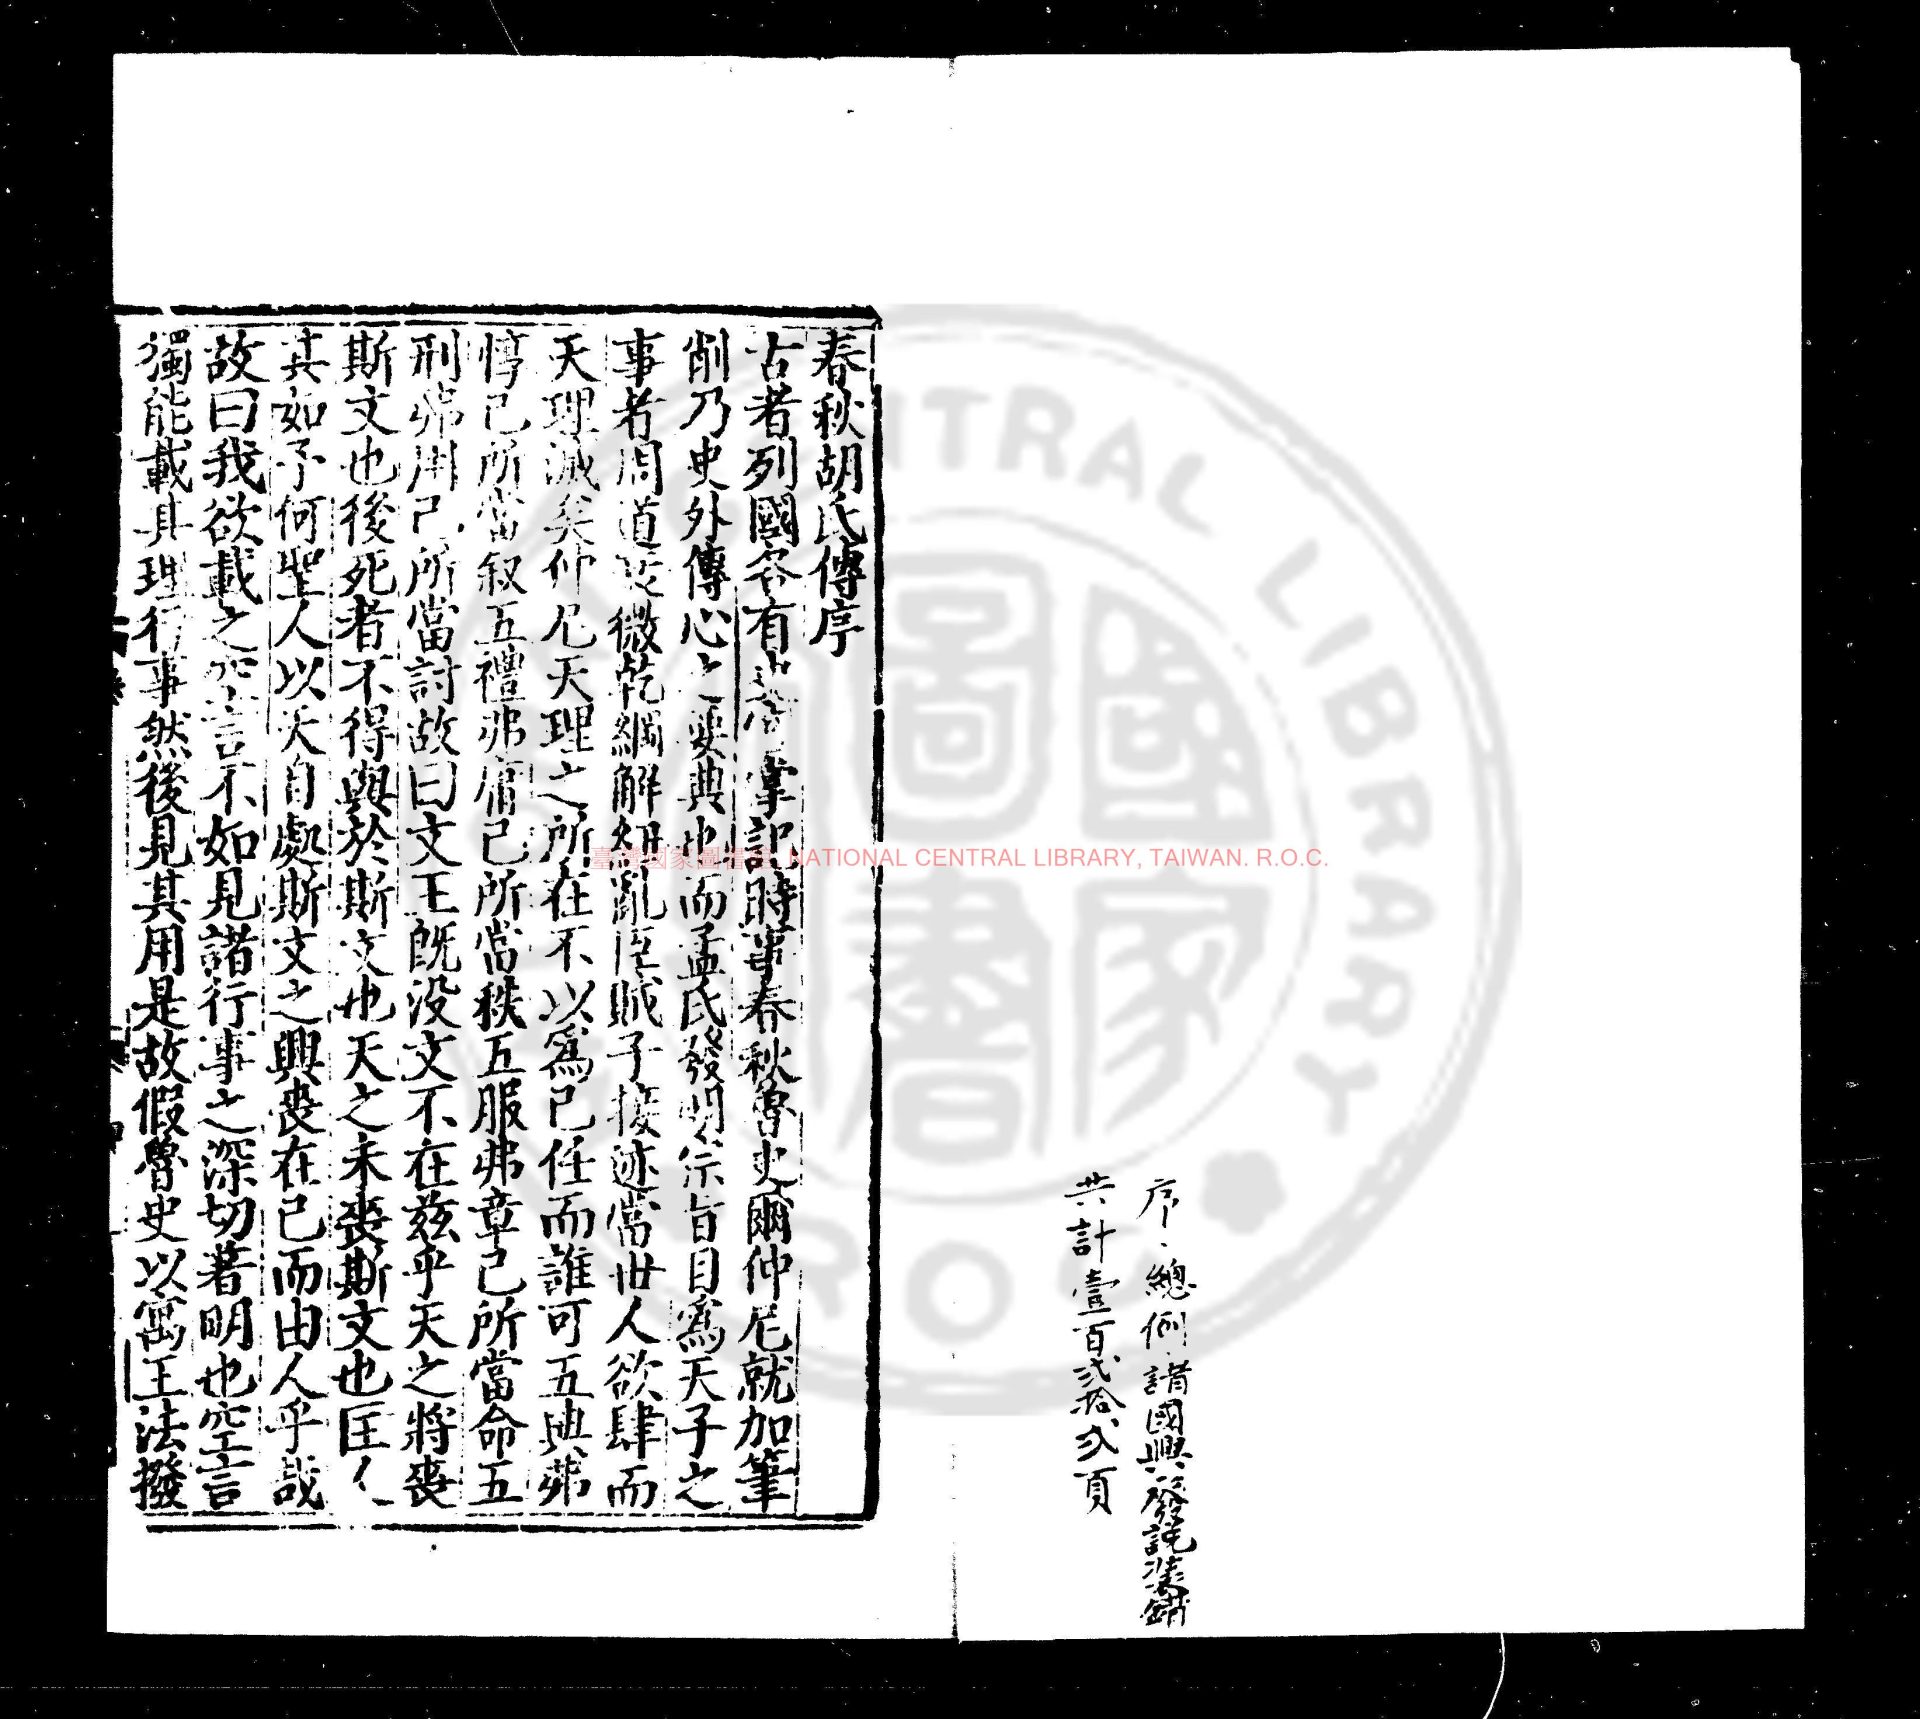 序、總例、諸國興發說
共計壹百貳拾貳頁
春秋胡氏傳序
古者列國各有史官掌記時事春秋魯史爾仲尼就加筆
削乃史外傳心之要典也而孟氏發明宗旨目爲天子之
事者周道衰微乾綱解紐亂臣賊子接迹當世人欲肆而
天理滅矣仲尼天理之所在不以爲己任而誰可五典弗
惇己所當叙五禮弗庸己所當秩五服弗章己所當命五
刑弗用己所當討故曰文王既没文不在兹乎天之將喪
斯文也後死者不得與於斯文也天之未喪斯文也匡人
其如予何聖人以天自處斯文之興喪在己而由人乎哉
故曰我欲載之空言不如見諸行事之深切著明也空言
獨能載其理行事然後見其用是故假魯史以寓王法撥
臺灣國家圖書館 NATIONAL CENTRAL LIBRARY, TAIWAN. R.O.C.
CENTRAL LIBRARY
國家圖書
ROC